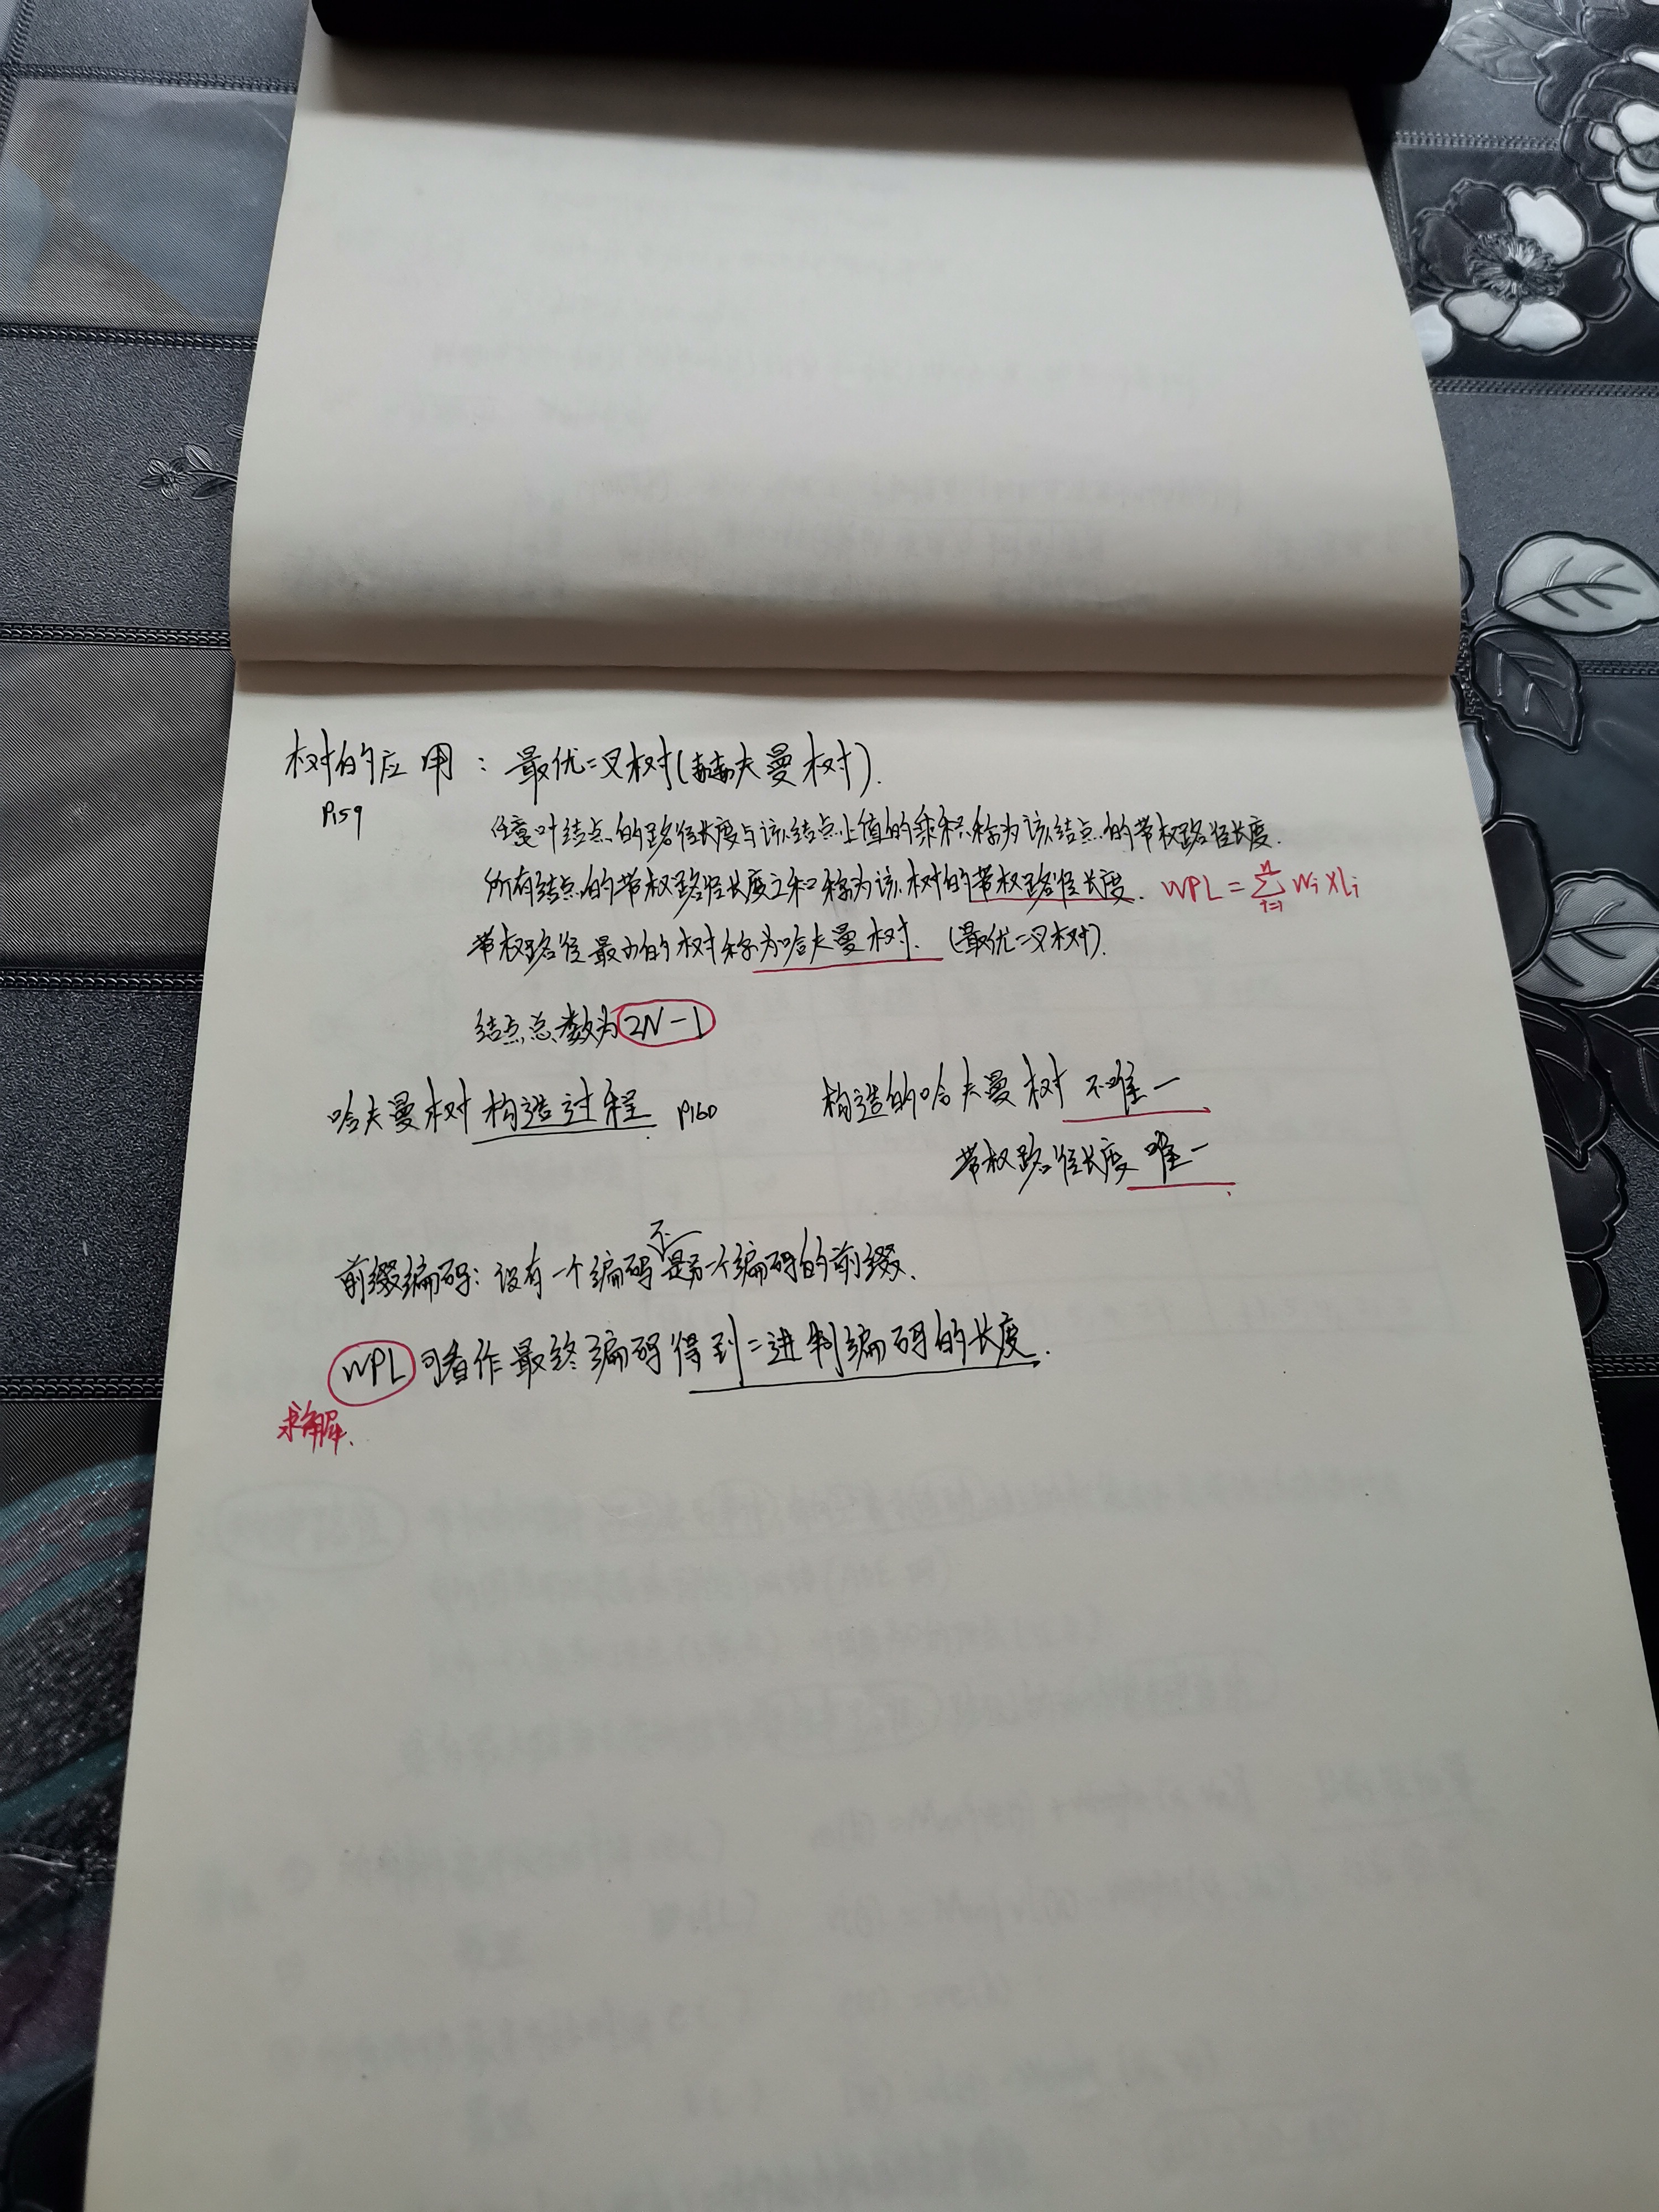 树的应用：最优二叉树(赫夫曼树).
P159
任意叶结点的路径长度与该结点上值的乘积称为该结点的带权路径长度.
所有结点的带权路径长度之和称为该树的带权路径长度. WPL = ∑ⁿᵢ₌₁ Wi × Li
带权路径最小的树称为哈夫曼树. (最优二叉树).
结点总数为 2N-1
哈夫曼树构造过程. P160 构造的哈夫曼树不唯一
带权路径长度唯一.
前缀编码：没有一个编码不是另一个编码的前缀.
WPL可看作最终编码得到二进制编码的长度.
求解.